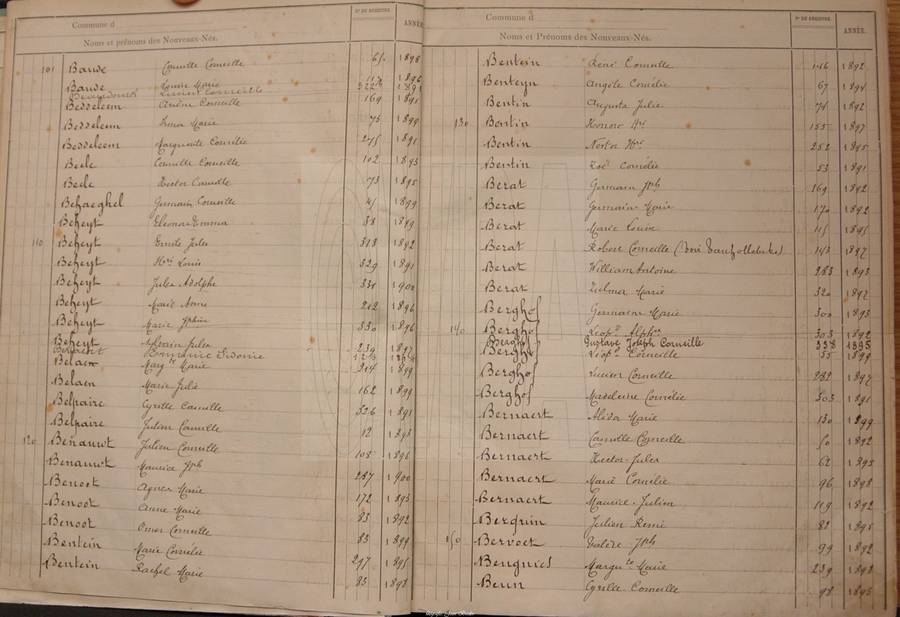 Commune d
Nos DE REGISTRE
ANNÉE
Noms et prénoms des Nouveaux-Nés.
101 Bauwe Camille Corneille 61 1898
Bauwe Marie 1896
Lucien Corneille
Besseleem Corneille 169 1891
Besseleem Irma Marie 75 1899
Besseleem Marguerite Cornélie 275 1891
Beele Camille Corneille 102 1893
Beele Hector Camille 73 1895
Behaeghel Germain Corneille 45 1899
Beheyt Eleonore Emma 38 1889
110 Beheyt Emile Jules 318 1892
Beheyt Hri Louis 329 1891
Beheyt Jules Adolphe 331 1900
Beheyt Marie Anne 212 1896
Beheyt Marie 330 1896
Beheyt Jules 239 1897
Dominic Isidore
Belaen Margte Marie 214 1899
Belaen Marie Julie 162 1899
Belpaire Cyrille Camille 326 1891
Belpaire Julien Camille 12 1893
120 Benauwt Julien Corneille 108 1896
Benauwt Maurice Jph 287 1900
Benoot Agnes Marie 172 1893
Benoot Anne Marie 83 1892
Benoot Omer Corneille 83 1899
Bentein Marie Cornélie 297 1895
Bentein Rachel Marie 83 1898
Commune d
Nos DE REGISTRE
ANNÉE.
Noms et Prénoms des Nouveaux-Nés.
Bentein René Corneille 146 1892
Benteyn Angèle Cornélie 67 1894
Bentin Augusta Julie 74 1892
130 Bentin Honoré Hri 155 1897
Bentin Nestor Hri 252 1895
Bentin Zoé Cornélie 53 1891
Berat Germain Jph 169 1892
Berat Germaine Marie 170 1892
Berat Marie Louise 115 1895
Berat Robert Corneille 143 1897
Berat William Antoine 283 1893
Berat Zulma Marie 320 1892
Berghof Germaine Marie 300 1893
140 Berghof Léopd Alphse 303 1892
Berghof Gustave Joseph Corneille 338 1895
Berghof Léopd Corneille 55 1899
Berghof Lucien Corneille 282 1897
Berghof Madeleine Cornélie 303 1891
Bernaert Alida Marie 130 1899
Bernaert Camille Corneille 50 1892
Bernaert Hector Jules 62 1895
Bernaert Marie Cornélie 96 1898
Bernaert Maurice Julien 119 1892
Berquin Julien Remi 82 1895
150 Bervoet Valère Jph 99 1892
Margte Marie 239 1898
Cyrille Corneille 98 1895